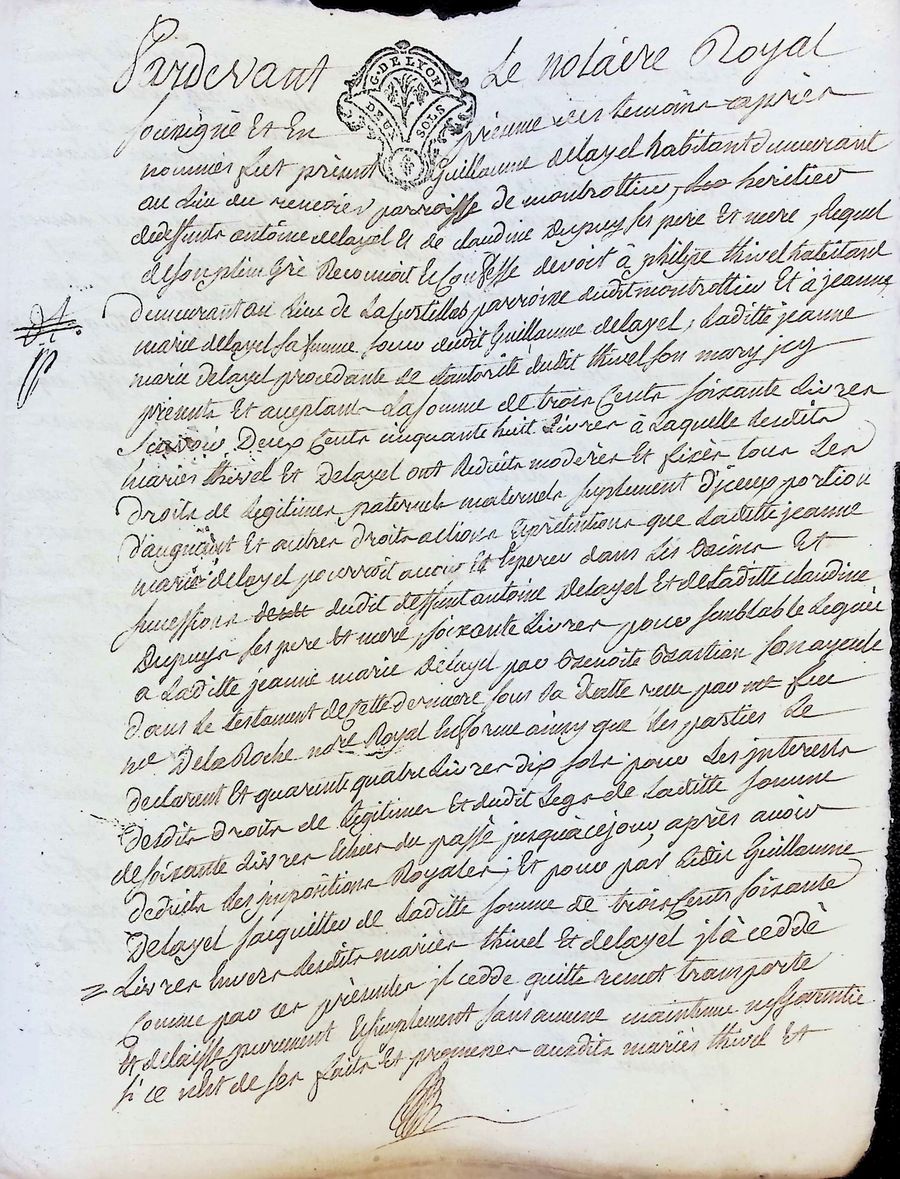 Pardevant Le notaire Royal
G. DE LYON
DEUX SOLS
soussigné Et En présence des temoins apres
nommés fut présent Guillaume delayel habitant demeurant
au Lieu du parroisse de montrottier, heritier
de deffunts antoine delayel Et de claudine Dupuy ses pere Et mere, Lequel
de son plein Gré Reconnoit Et Confesse devoir à philipe thivel habitant
demeurant au Lieu de La parroisse dudit montrottier Et à jeanne
marie delayel sa femme soeur dudit Guillaume delayel, Laditte jeanne
marie delayel procedante de Lautorité dudit thivel son mary icy
présents Et acceptant La somme de trois Cents soixante Livres
sçavoir Deux Cents cinquante huit Livres à Laquelle Lesdits
mariés thivel Et Delayel ont Reduits moderés Et fixés tous Les
droits de Legitimes paternels maternels suplement d'iceux portion
d'augment Et autres droits actions Et prétentions que Laditte jeanne
marie delayel pourroit avoir Et Esperer dans Les Et
successions dudit deffunt antoine delayel Et de Laditte claudine
Dupuys ses pere Et mere, soixante Livres pour semblable Leguée
a Laditte jeanne marie Delayel par Benoite Bastian son ayeule
dans Le testament de Cette derniere sous sa Datte reçu par mt feu
me Delaroche nore Royal En forme ainsy que Les parties Le
declarent Et quarente quatre Livres dix sols pour Les interests
desdits droits de Légitimes Et dudit Legs de Laditte somme
de soixante Livres Echus du passé jusquà ce jour, après avoir
deduits Les impositions Royales, Et pour par Ledit Guillaume
Delayel s'acquitter de Laditte somme de trois Cents soixante
Livres Envers Lesdits mariés thivel Et delayel jl à ceddé
Comme par ces présentes jl cedde quitte remet transporte
Et delaisse purement Et simplement sans aucune maintenue ny Garentie
si ce n'est de ses faits Et promesses auxdits mariés thivel Et